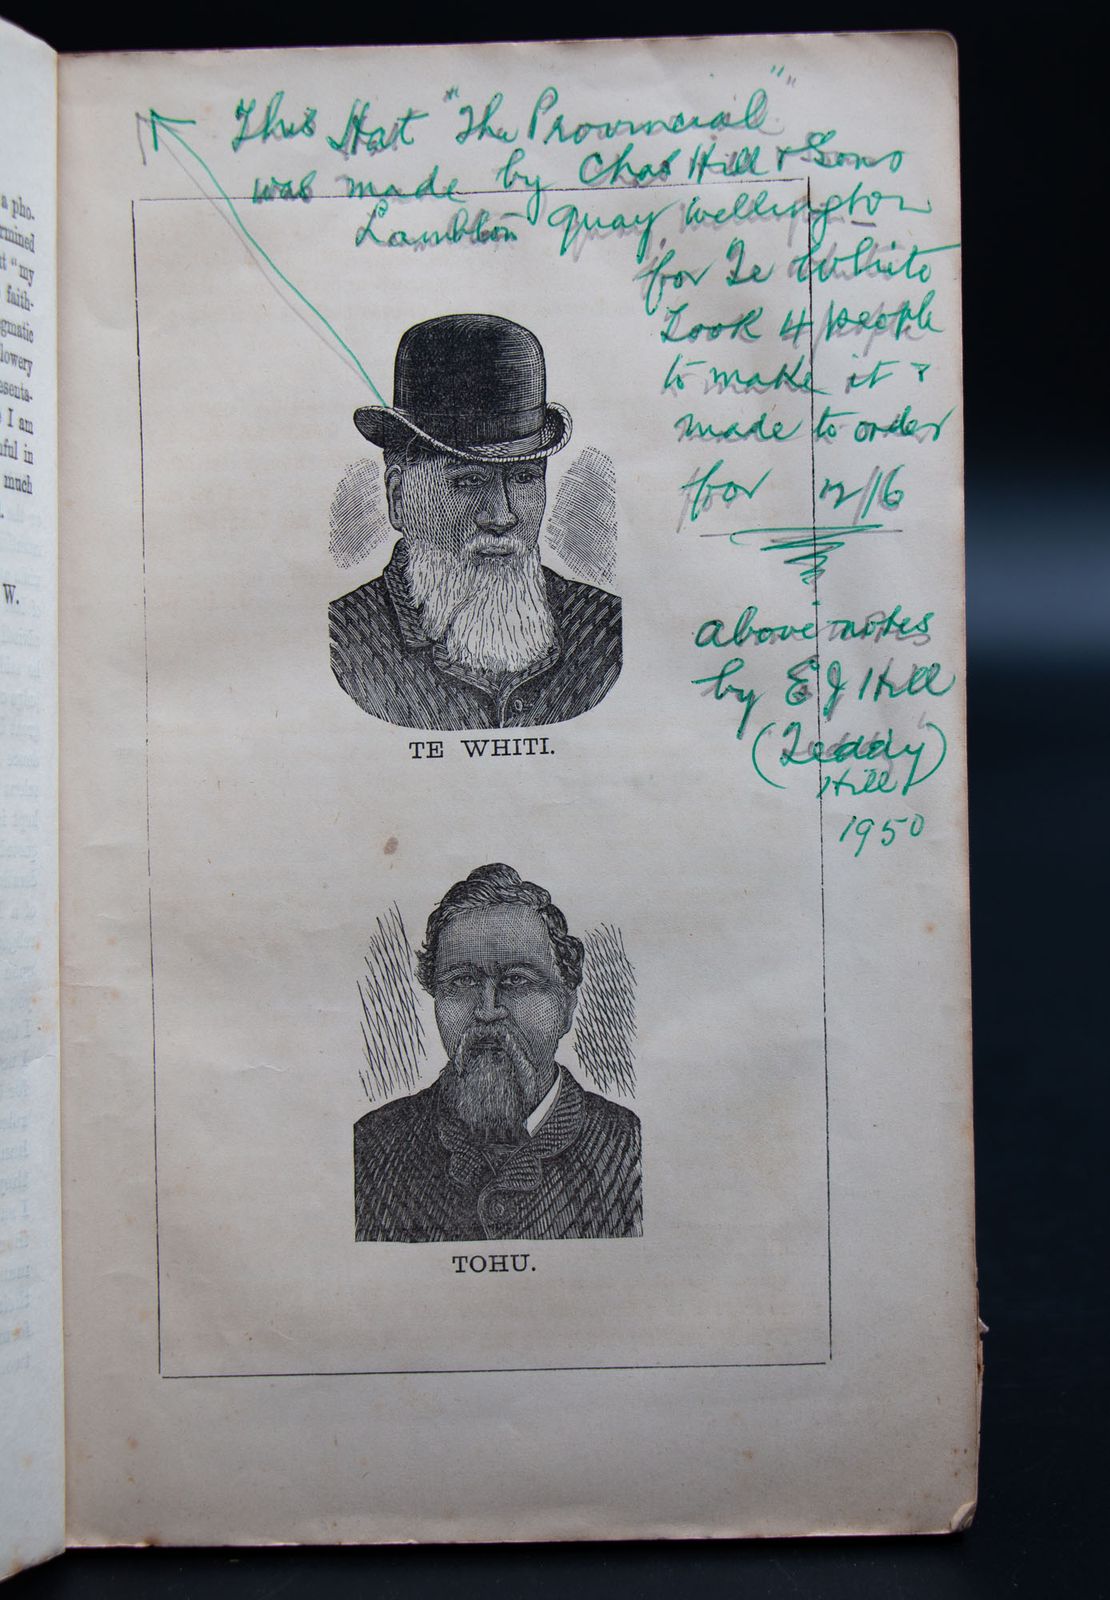 a pho-
rmined
t "my
faith-
gmatic
lowery
esenta-
I am
ful in
much
W.
This Hat "The Provincial"
was made by Chas Hill & Sons
Lambton quay, wellington
for Te White
Took 4 people
to make it &
made to order
for 12/6
above notes
by E J Hill
(Teddy)
Hill
1950
TE WHITI.
TOHU.